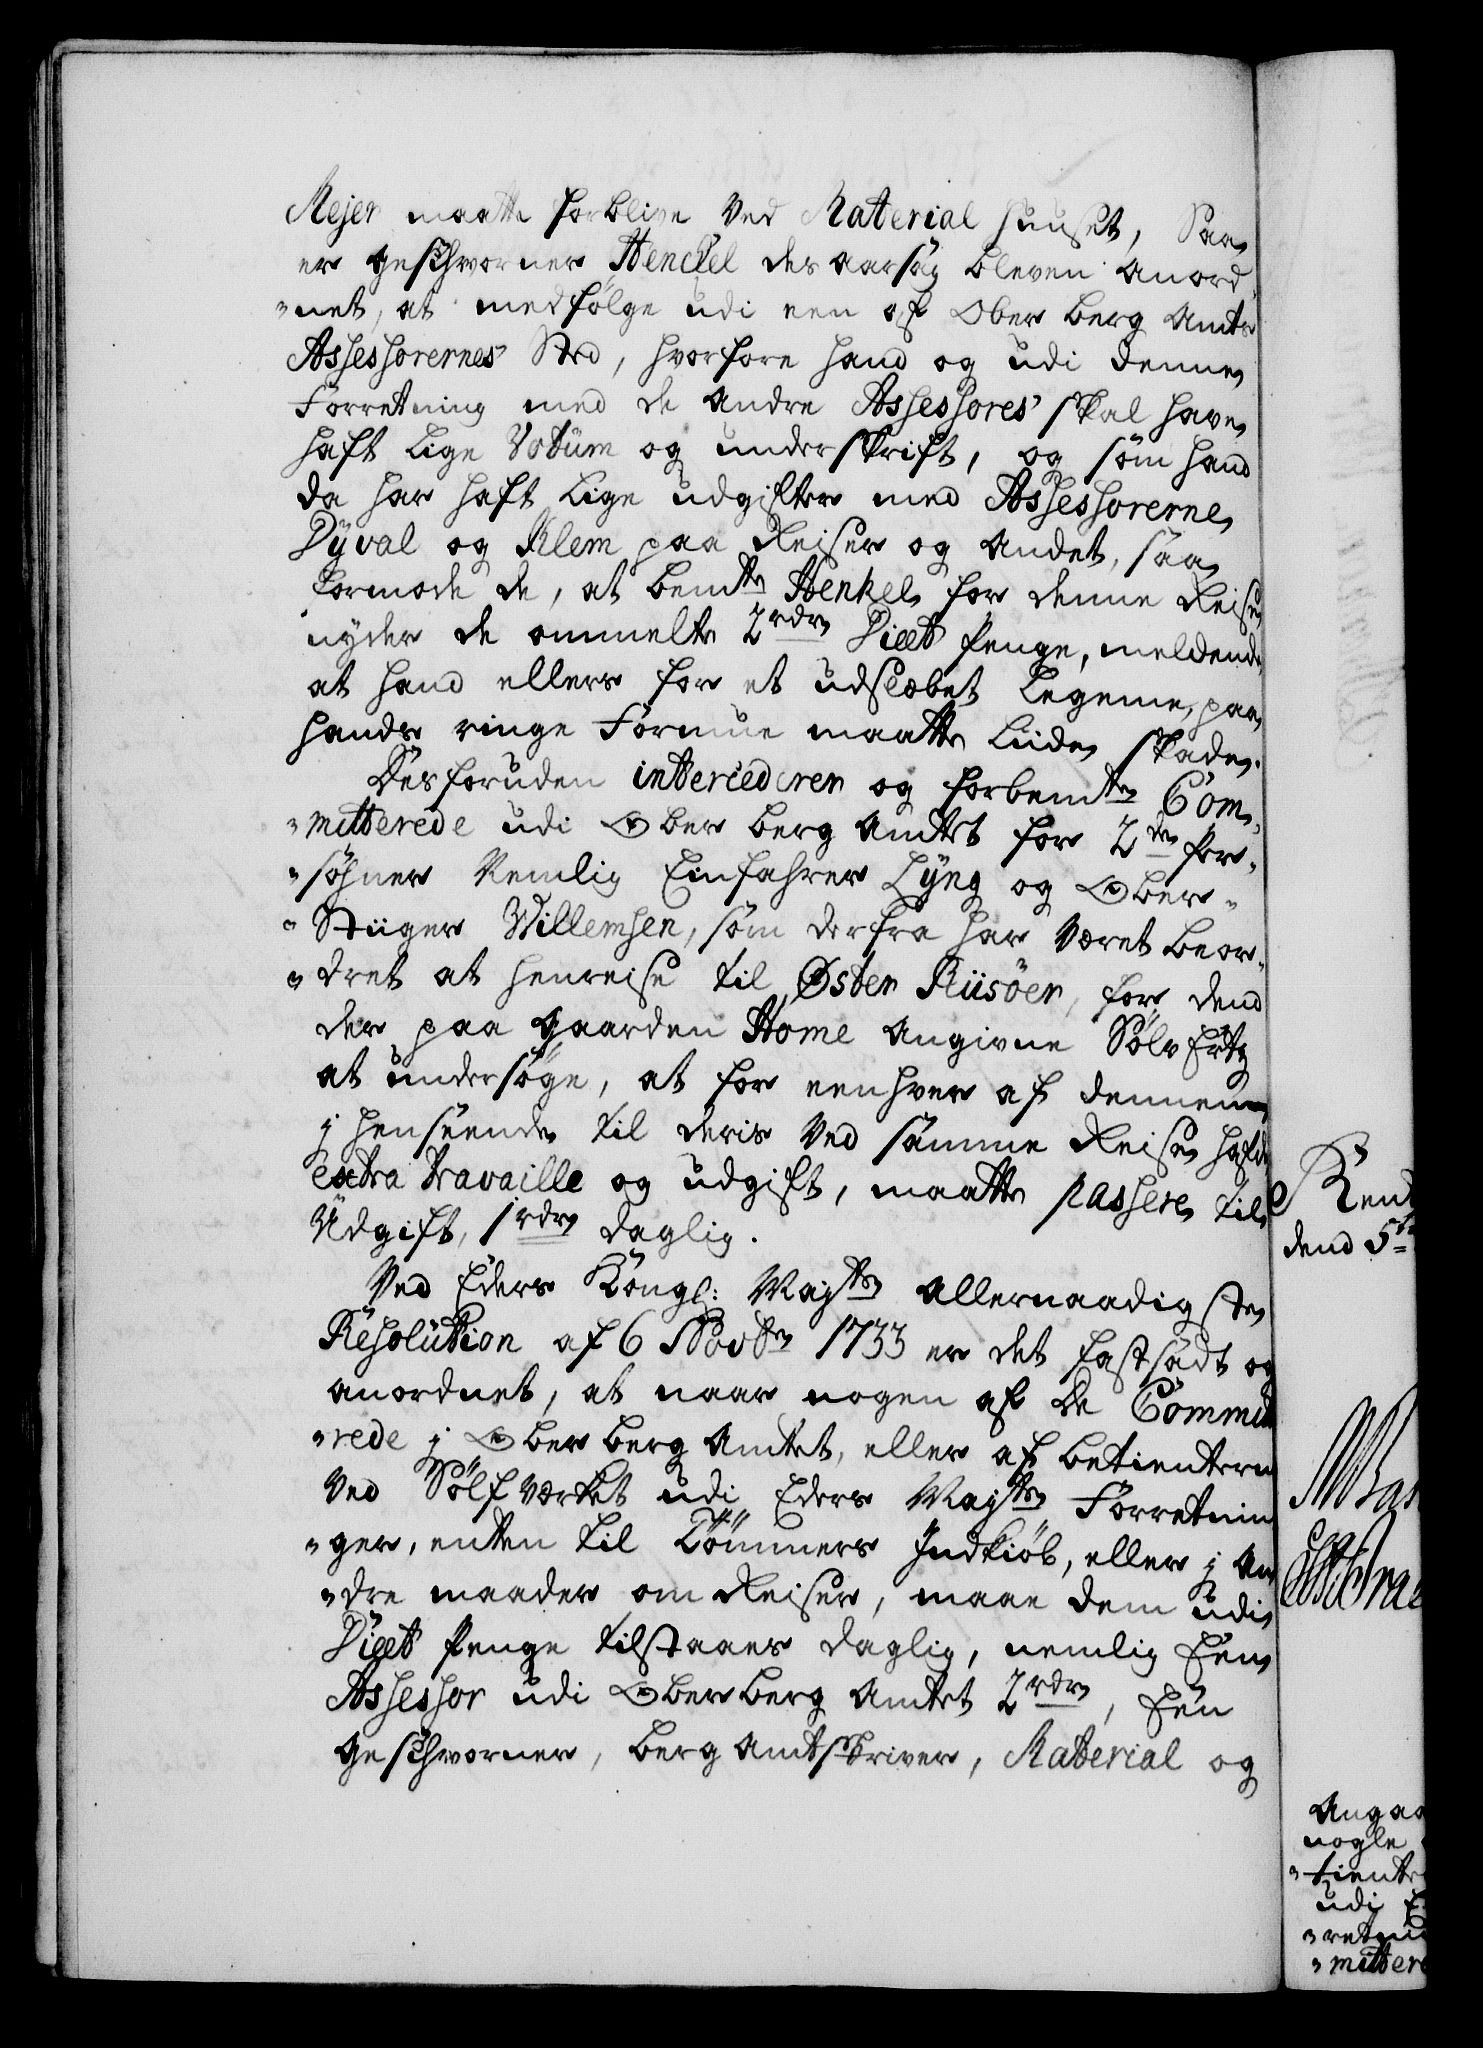 Mejer maatte forblive ved Material Huuset, Saa
er Geschworner Henckel des aarsag bleven anord-
-net, at medfølge udi een af Ober Berg Amts
Assessorernes Sted, hvorfore hand og udi denne
Forretning med de andre Assessores skal have
haft lige Votum og underskrift, og som hand
da har haft lige udgifter med Assessorerne
Dyval og Klem paa Reiser og andet, saa
formode de, at bemte Henkel for denne Reise
nyder de ommelte 2 rdr Diæt Penge, meldende
at hand ellers for et udslæbet Legeme, paa
hands ringe Formue maatte liide skade.
Desforuden intercederer og forbemte Com-
-mitterede udi Ober Berg Amtet for 2de Per-
-sohner Nemlig Einfahrer Lyng og Ober-
-Stiiger Willemsen, som derfra har været beor-
-dret at henreise til Øster Riisöer, for dend
der paa Gaarden Home angivne Sölv Ertz
at undersöge, at for eenhver af dennem
j henseende til deris ved samme Reise hafde
extra travaille og udgift, maatte passere til
Udgift, 1 rdr daglig.
Ved Eders Kongl: Mayts allernaadigste
Resolution af 6 Novbr 1733 er det fastsadt og
anordnet, at naar nogen af de Committe
-rede j Ober Berg Amtet, eller af betienterne
ved Sölf Værket udi Eders Mayts Forretnin
-ger, enten til Tömmers Indkiöb, eller j an
-dre maader om Reiser, maae dem udi
Diæt Penge tilstaaes daglig, nemlig Een
Assessor udi Ober Berg Amtet 2 rdr, Een
Geschworner, Berg Amtskriver, Material og
Rent
dend 5te
Angaa
nogle
-tiente
udi E
-retni
-mittere